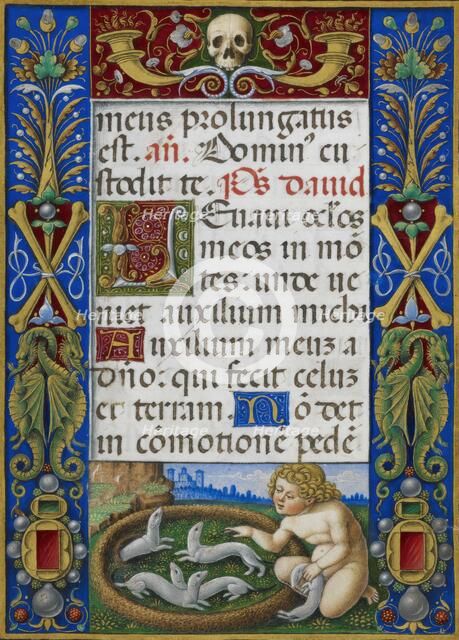 meus prolungatus
est. añ. Domin⁹ cu
stodit te. Ps̃ david
LEvavi oc̃los
meos in mõ
tes: unde ve
niet auxilium michi
Auxilium meuz a
dño: qui fecit celuz
et terram. Nõ det
in cõmotionẽ pedẽ